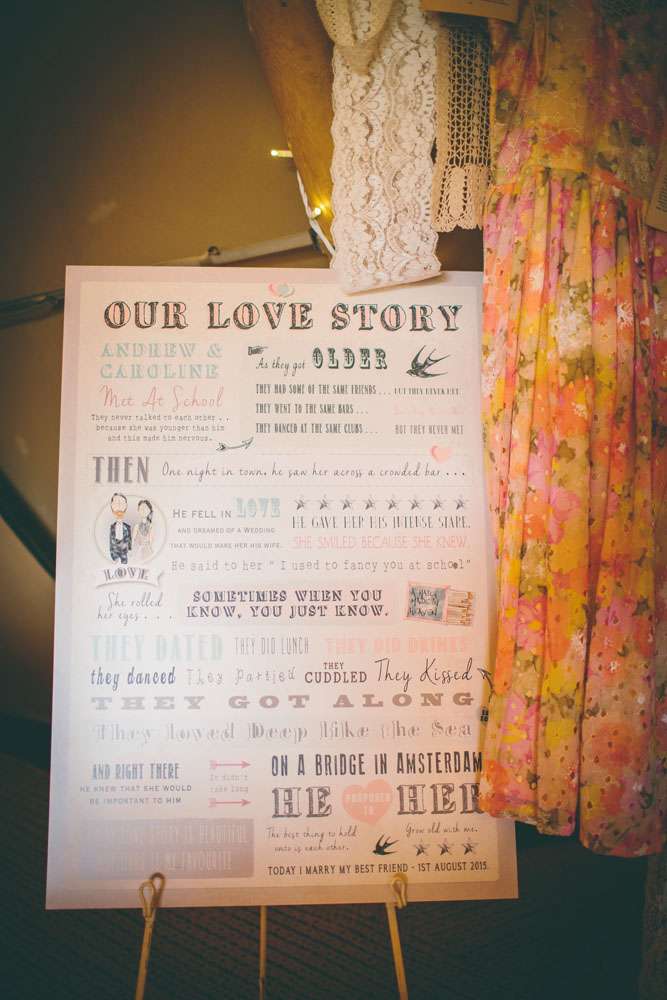 OUR LOVE STORY
ANDREW &
CAROLINE
Met At School
They never talked to each other . .
because she was younger than him
and this made him nervous.
As they got OLDER
THEY HAD SOME OF THE SAME FRIENDS . . . BUT THEY NEVER MET
THEY WENT TO THE SAME BARS . . .
THEY DANCED AT THE SAME CLUBS . . . BUT THEY NEVER MET
THEN One night in town, he saw her across a crowded bar . . .
LOVE
HE FELL IN LOVE
AND DREAMED OF A WEDDING
THAT WOULD MAKE HER HIS WIFE.
HE GAVE HER HIS INTENSE STARE.
SHE SMILED BECAUSE SHE KNEW.
He said to her " I used to fancy you at school"
She rolled
her eyes . . . .
SOMETIMES WHEN YOU
KNOW, YOU JUST KNOW.
THEY DATED THEY DID LUNCH THEY DID DRINKS
they danced They Partied THEY CUDDLED They Kissed
THEY GOT ALONG
They Loved Deep like the Sea
AND RIGHT THERE
HE KNEW THAT SHE WOULD
BE IMPORTANT TO HIM
It didn't
take long
ON A BRIDGE IN AMSTERDAM
HE PROPOSED TO HER
The best thing to hold
onto is each other.
Grow old with me.
IS BEAUTIFUL
IS MY FAVOURITE
TODAY I MARRY MY BEST FRIEND - 1ST AUGUST 2015.